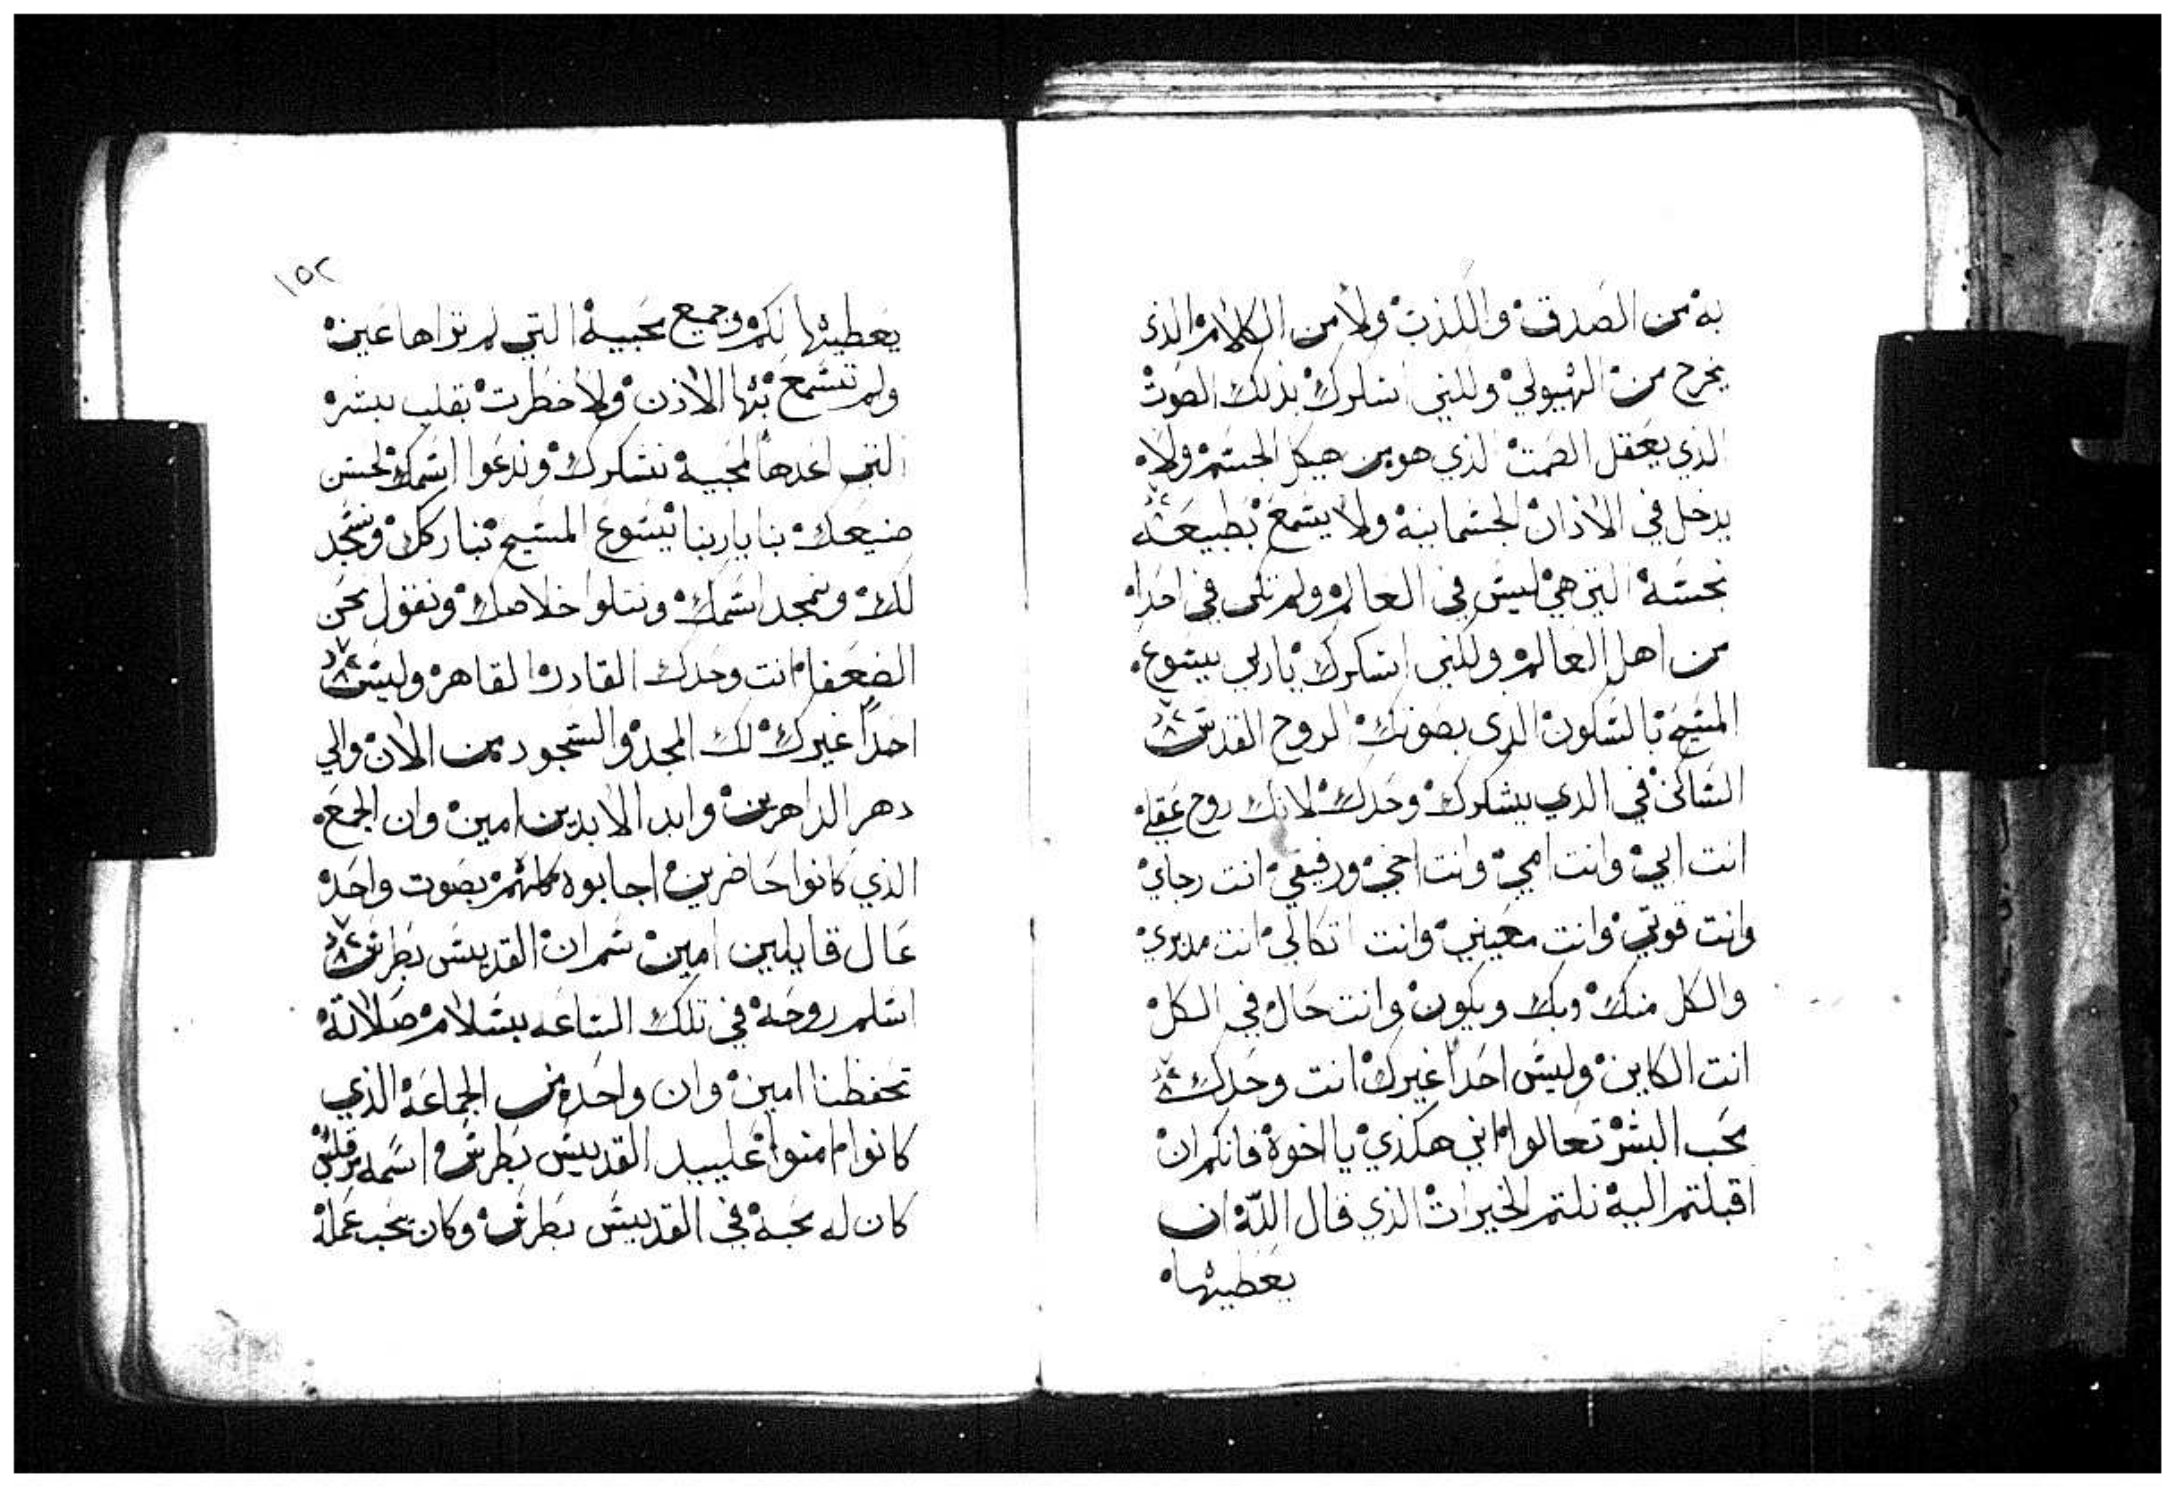 به من الصدق والكذب ولا من الكلام الذي
يخرج من الهيولي ولكني اشكرك بذلك الصوت
الذي يعقل الصمت الذي هو من هيكل الجسم ولا
يدخل في الاذان الجسمانيه ولا يسمع بطبيعه
نجسة التي هي ليس في العالم ولم تكن في احدا
من اهل العالم ولكني اشكرك ياربي يسوع
المسيح بالسكون الذي بصوتك الروح القدس
الساكن في الذي يشكرك وحدك لانك روح عقلي
انت ابي وانت امي وانت اخي ورفيقي انت رجاي
وانت قوتي وانت معيني وانت اتكالي انت مدبري
والكل منك وبك ويكون وانت حال في الكل
انت الكاين وليس احداً غيرك انت وحدك
محب البشر تعالوا اني هكذي يا اخوة فانكم ان
اقبلتم اليه نلتم الخيرات الذي قال الله ان
يعطيها
١٥٢
يعطيها لكم وجميع محبيه التي لم تراها عين
ولم تسمع بها الاذن ولا خطرت بقلب بشر
التي اعدها لمحبيه نشكرك وندعوا اسمك لحسن
صنيعك بنا ياربنا يسوع المسيح نباركك ونسجد
لك ونمجد اسمك ونتلوا خلاصك ونقول نحن
الضعفا انت وحدك القادر القاهر وليس
احداً غيرك لك المجد والسجود من الان والي
دهر الداهرين وابد الابدين امين وان الجمع
الذي كانوا حاضرين اجابوه كلهم بصوت واحد
عال قايلين امين ثم ان القديس بطرس
اسلم روحه في تلك الساعه بسلام صلاته
تحفظنا امين وان واحد من الجماعة الذي
كانوا امنوا علييد القديس بطرس اسمه مرقلس
كان له محبة في القديس بطرس وكان يحب عمله